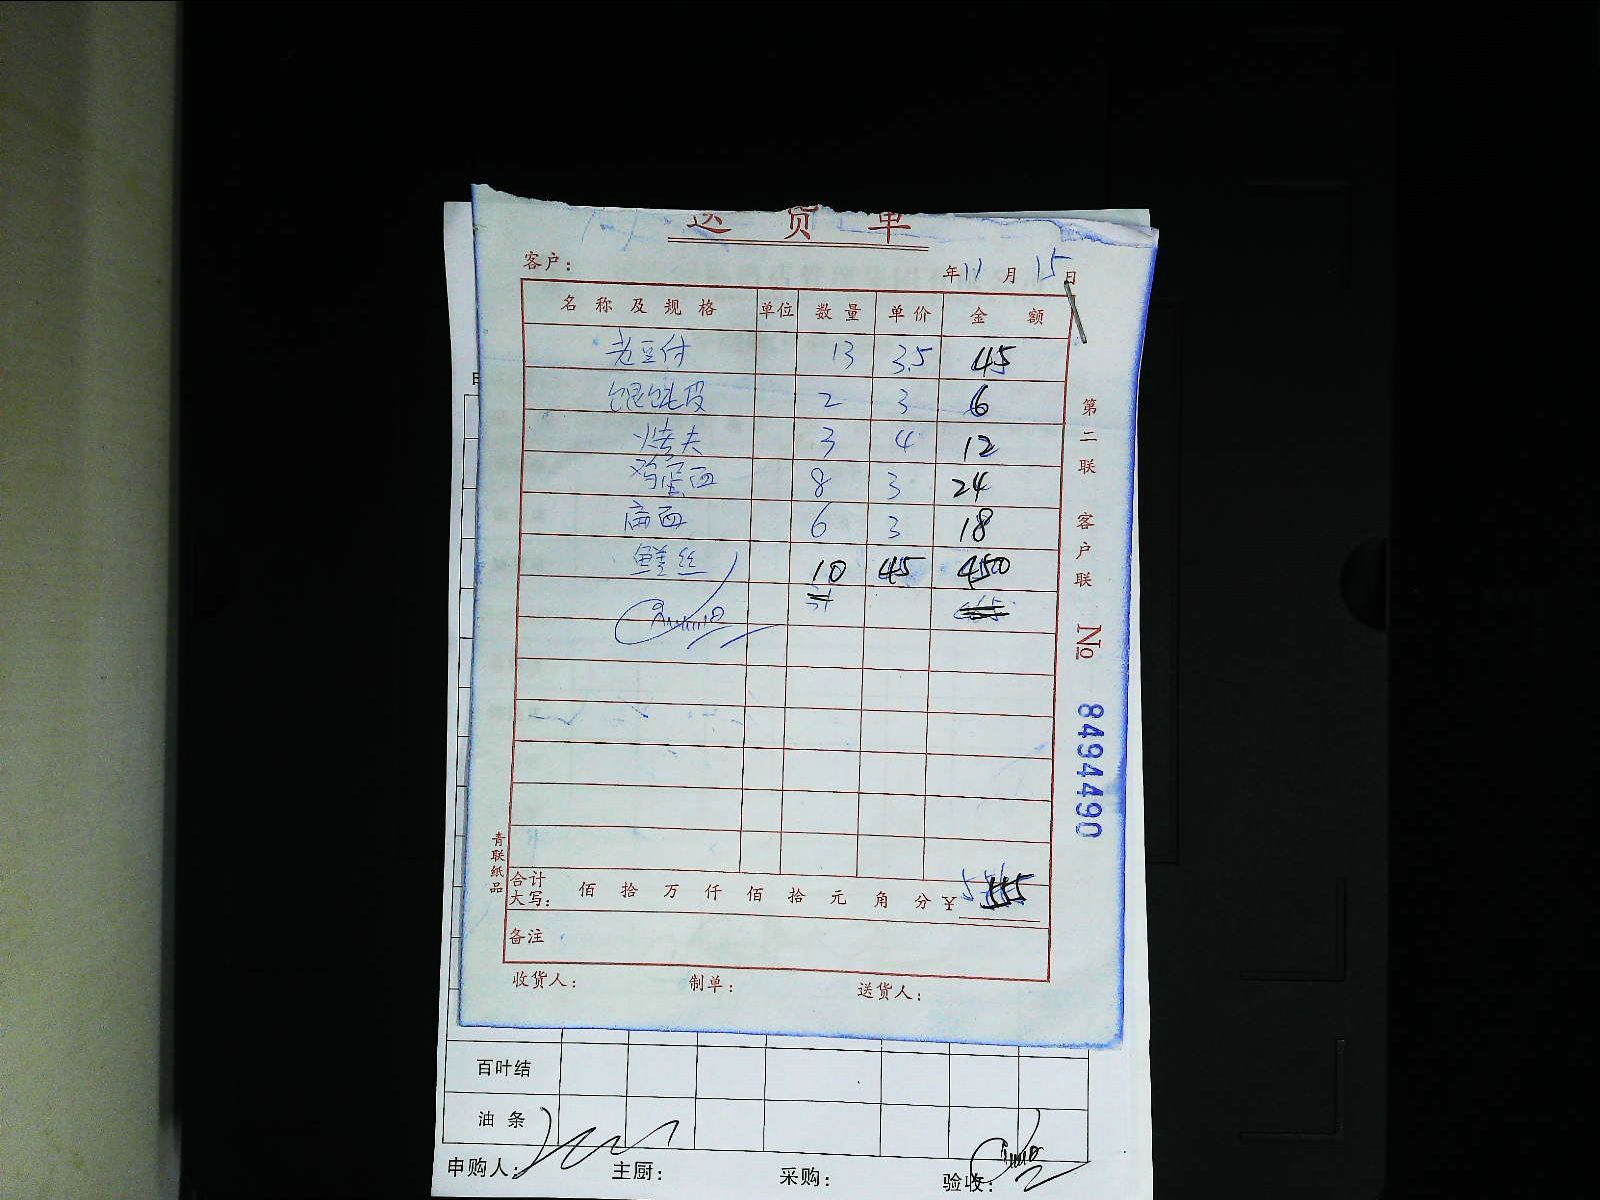 送 货 单
客户： 年 11 月 15 日
名 称 及 规 格 单位 数 量 单 价 金 额
老豆付 13 3.5 45
馄饨皮 2 3 6
烤夫 3 4 12
鸡蛋面 8 3 24
扁面 6 3 18
鲜丝 10 45 450
第二联 客户联
No 8494490
青联纸品
合计大写： 佰 拾 万 仟 佰 拾 元 角 分 ￥
备注
收货人： 制单： 送货人：
百叶结
油 条
申购人： 主厨： 采购： 验收：